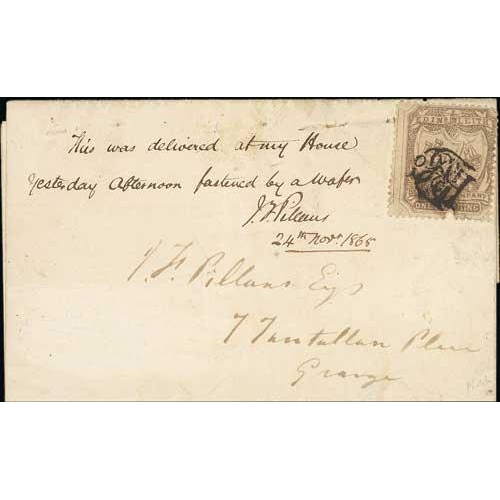 This was delivered at my House
Yesterday Afternoon fastened by a Wafer
J. F. Pillans
24th Novr. 1868
J. F. Pillans Esq
7 Tantallon Place
Grange
EDINR
ONE